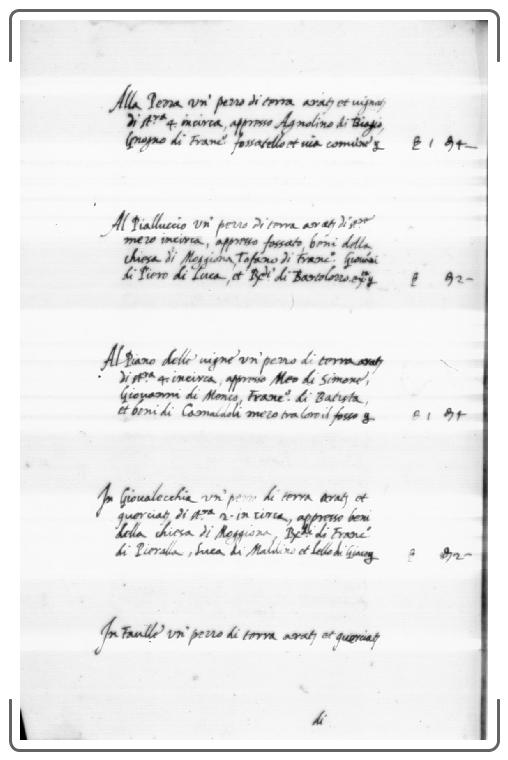 Alla Pezza un' pezzo di terra arat; et vignat;
di st.ra 4 incirca, appresso Agnolino di Biagio,
di Franc.o fossatello et via comune 1 4
Al Pialluccio un' pezzo di terra arat; di
mezo incirca, appresso fossato, beni della
chiesa di Moggiona, Tofano di Franc.o Giovani
di Piero di Luca, et di Bartolozzo 2
Al Piano delle vigne un' pezzo di terra arat;
di st.ra 4 incirca, appresso Meo di Simone,
Giovanni di Monco, Franc.o di Batista,
et beni di Camaldoli mezo tra loro il fosso 1 4
In Giovalecchia un' pezzo di terra arat; et
querciat; di st.ra 2 - in circa, appresso beni
della chiesa di Moggiona, di Franc.o
di Pieralla, Luca di Maldino et Lello di 2
In Faulle un' pezzo di terra arat; et querciat;
di